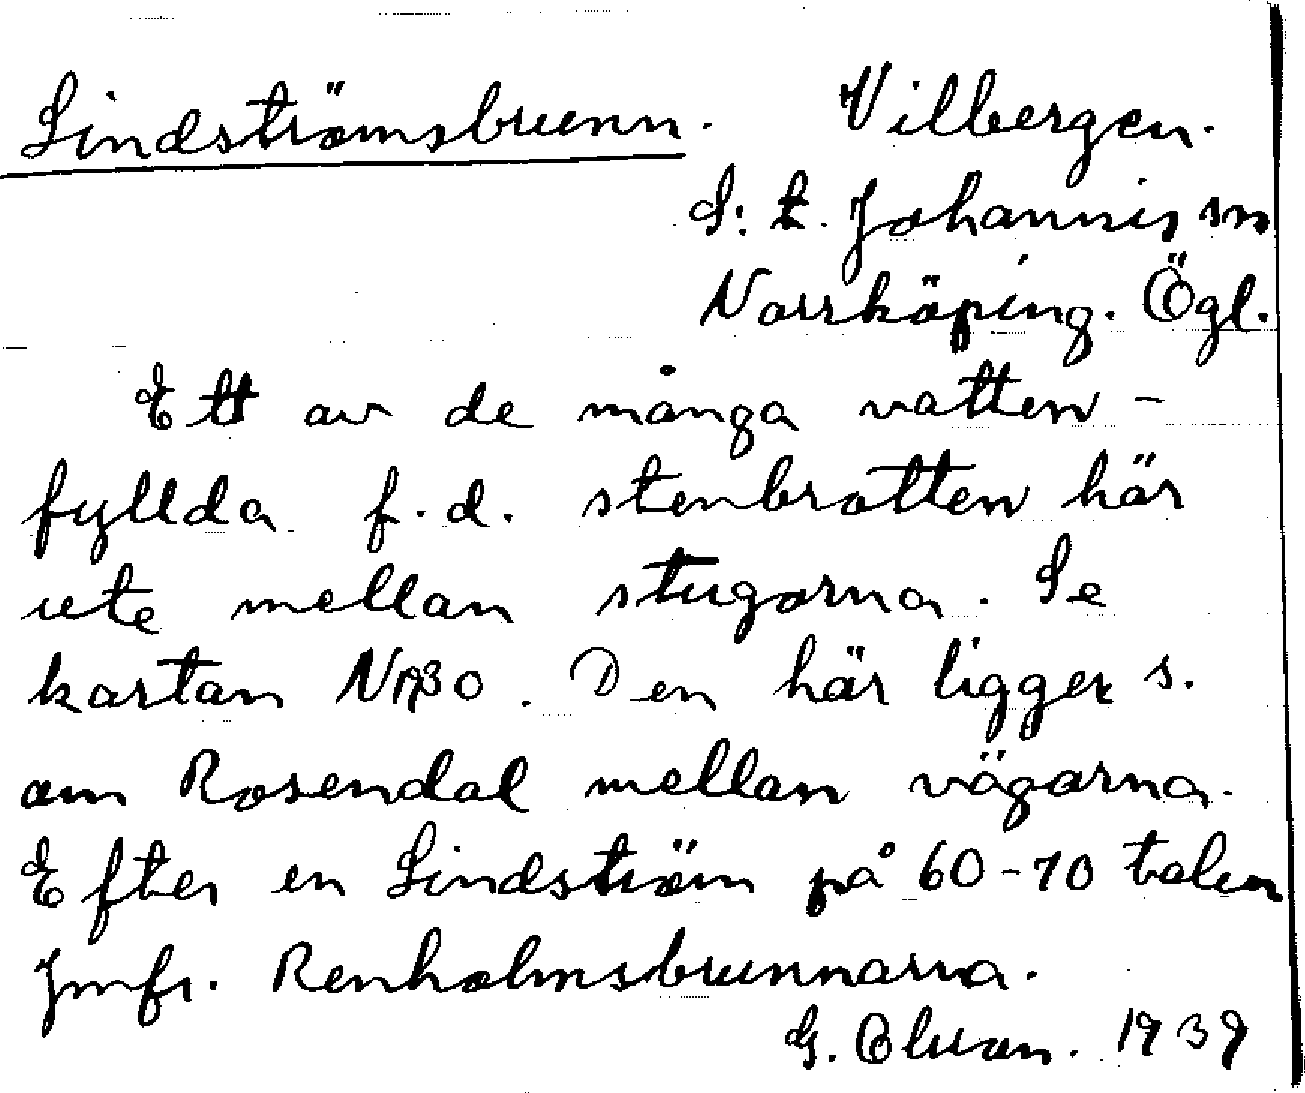 Lindströmsbrunn. Vilbergen.
S:t. Johannis sn
Norrköping. Ögl.
Ett av de många vatten-
fyllda f.d. stenbrotten här
ute mellan stugorna. Se
kartan N1930. Den här ligger s.
om Rosendal mellan vägarna.
Efter en Lindström på 60-70 talen
Jmfr. Renholmsbrunnarna.
G. 1939